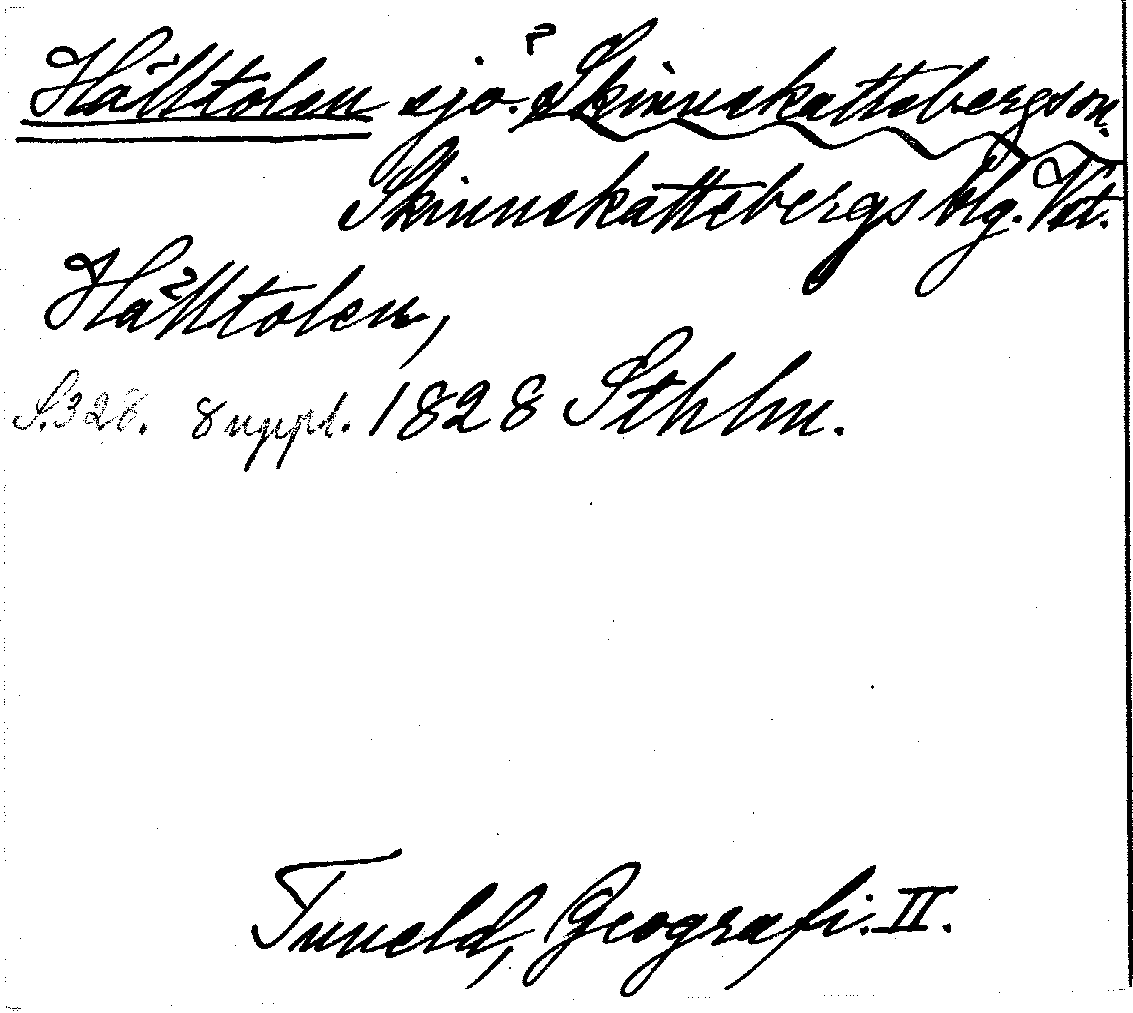 Hålltolen sjö. ? Skinnskattebergs sn.
Skinnskattebergs blg. Vst.
Hålltolen,
S.328. 8 uppl. 1828 Sthlm.
Tuneld, Geografi. II.